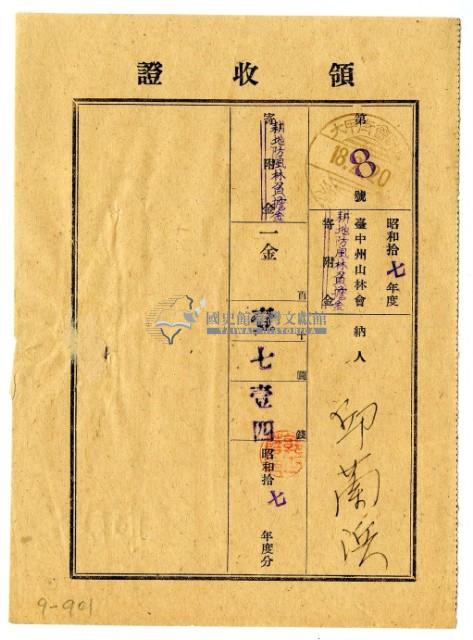 領收證
第8號
昭和拾七年度
臺中州山林會
寄附金
耕地防風林負擔金
納人
邱蘭
寄附金
耕地防風林負擔金
一金
百十圓錢
七壹四
昭和拾七年度分
國史館臺灣文獻館
TAIWAN HISTORICA
9-901